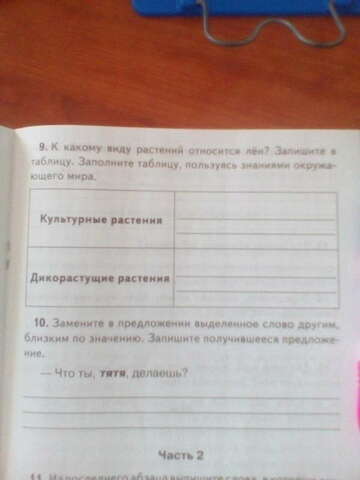 9. К какому виду растений относится лён? Запишите в
таблицу. Заполните таблицу, пользуясь знаниями окружа-
ющего мира.
Культурные растения
Дикорастущие растения
10. Замените в предложении выделенное слово другим,
близким по значению. Запишите получившееся предложе-
ние.
— Что ты, тятя, делаешь?
Часть 2
11. Из последнего абзаца выпишите слова, в которых